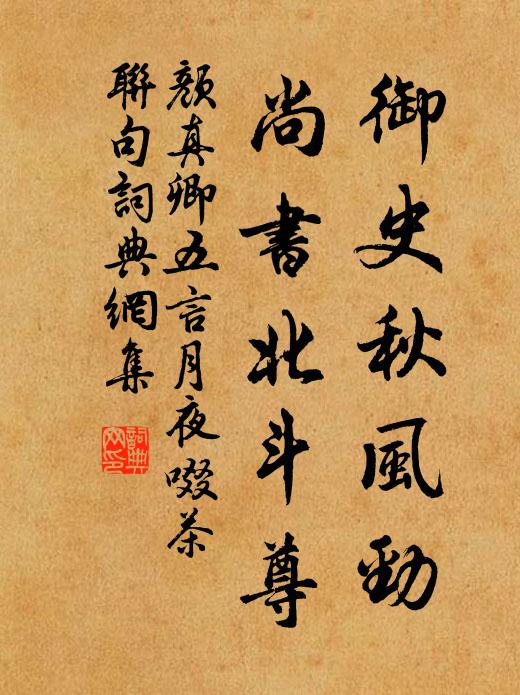 御史秋風勁
尚書北斗尊
顏真卿五言月夜啜茶
聯句詞典網集
詞典網印